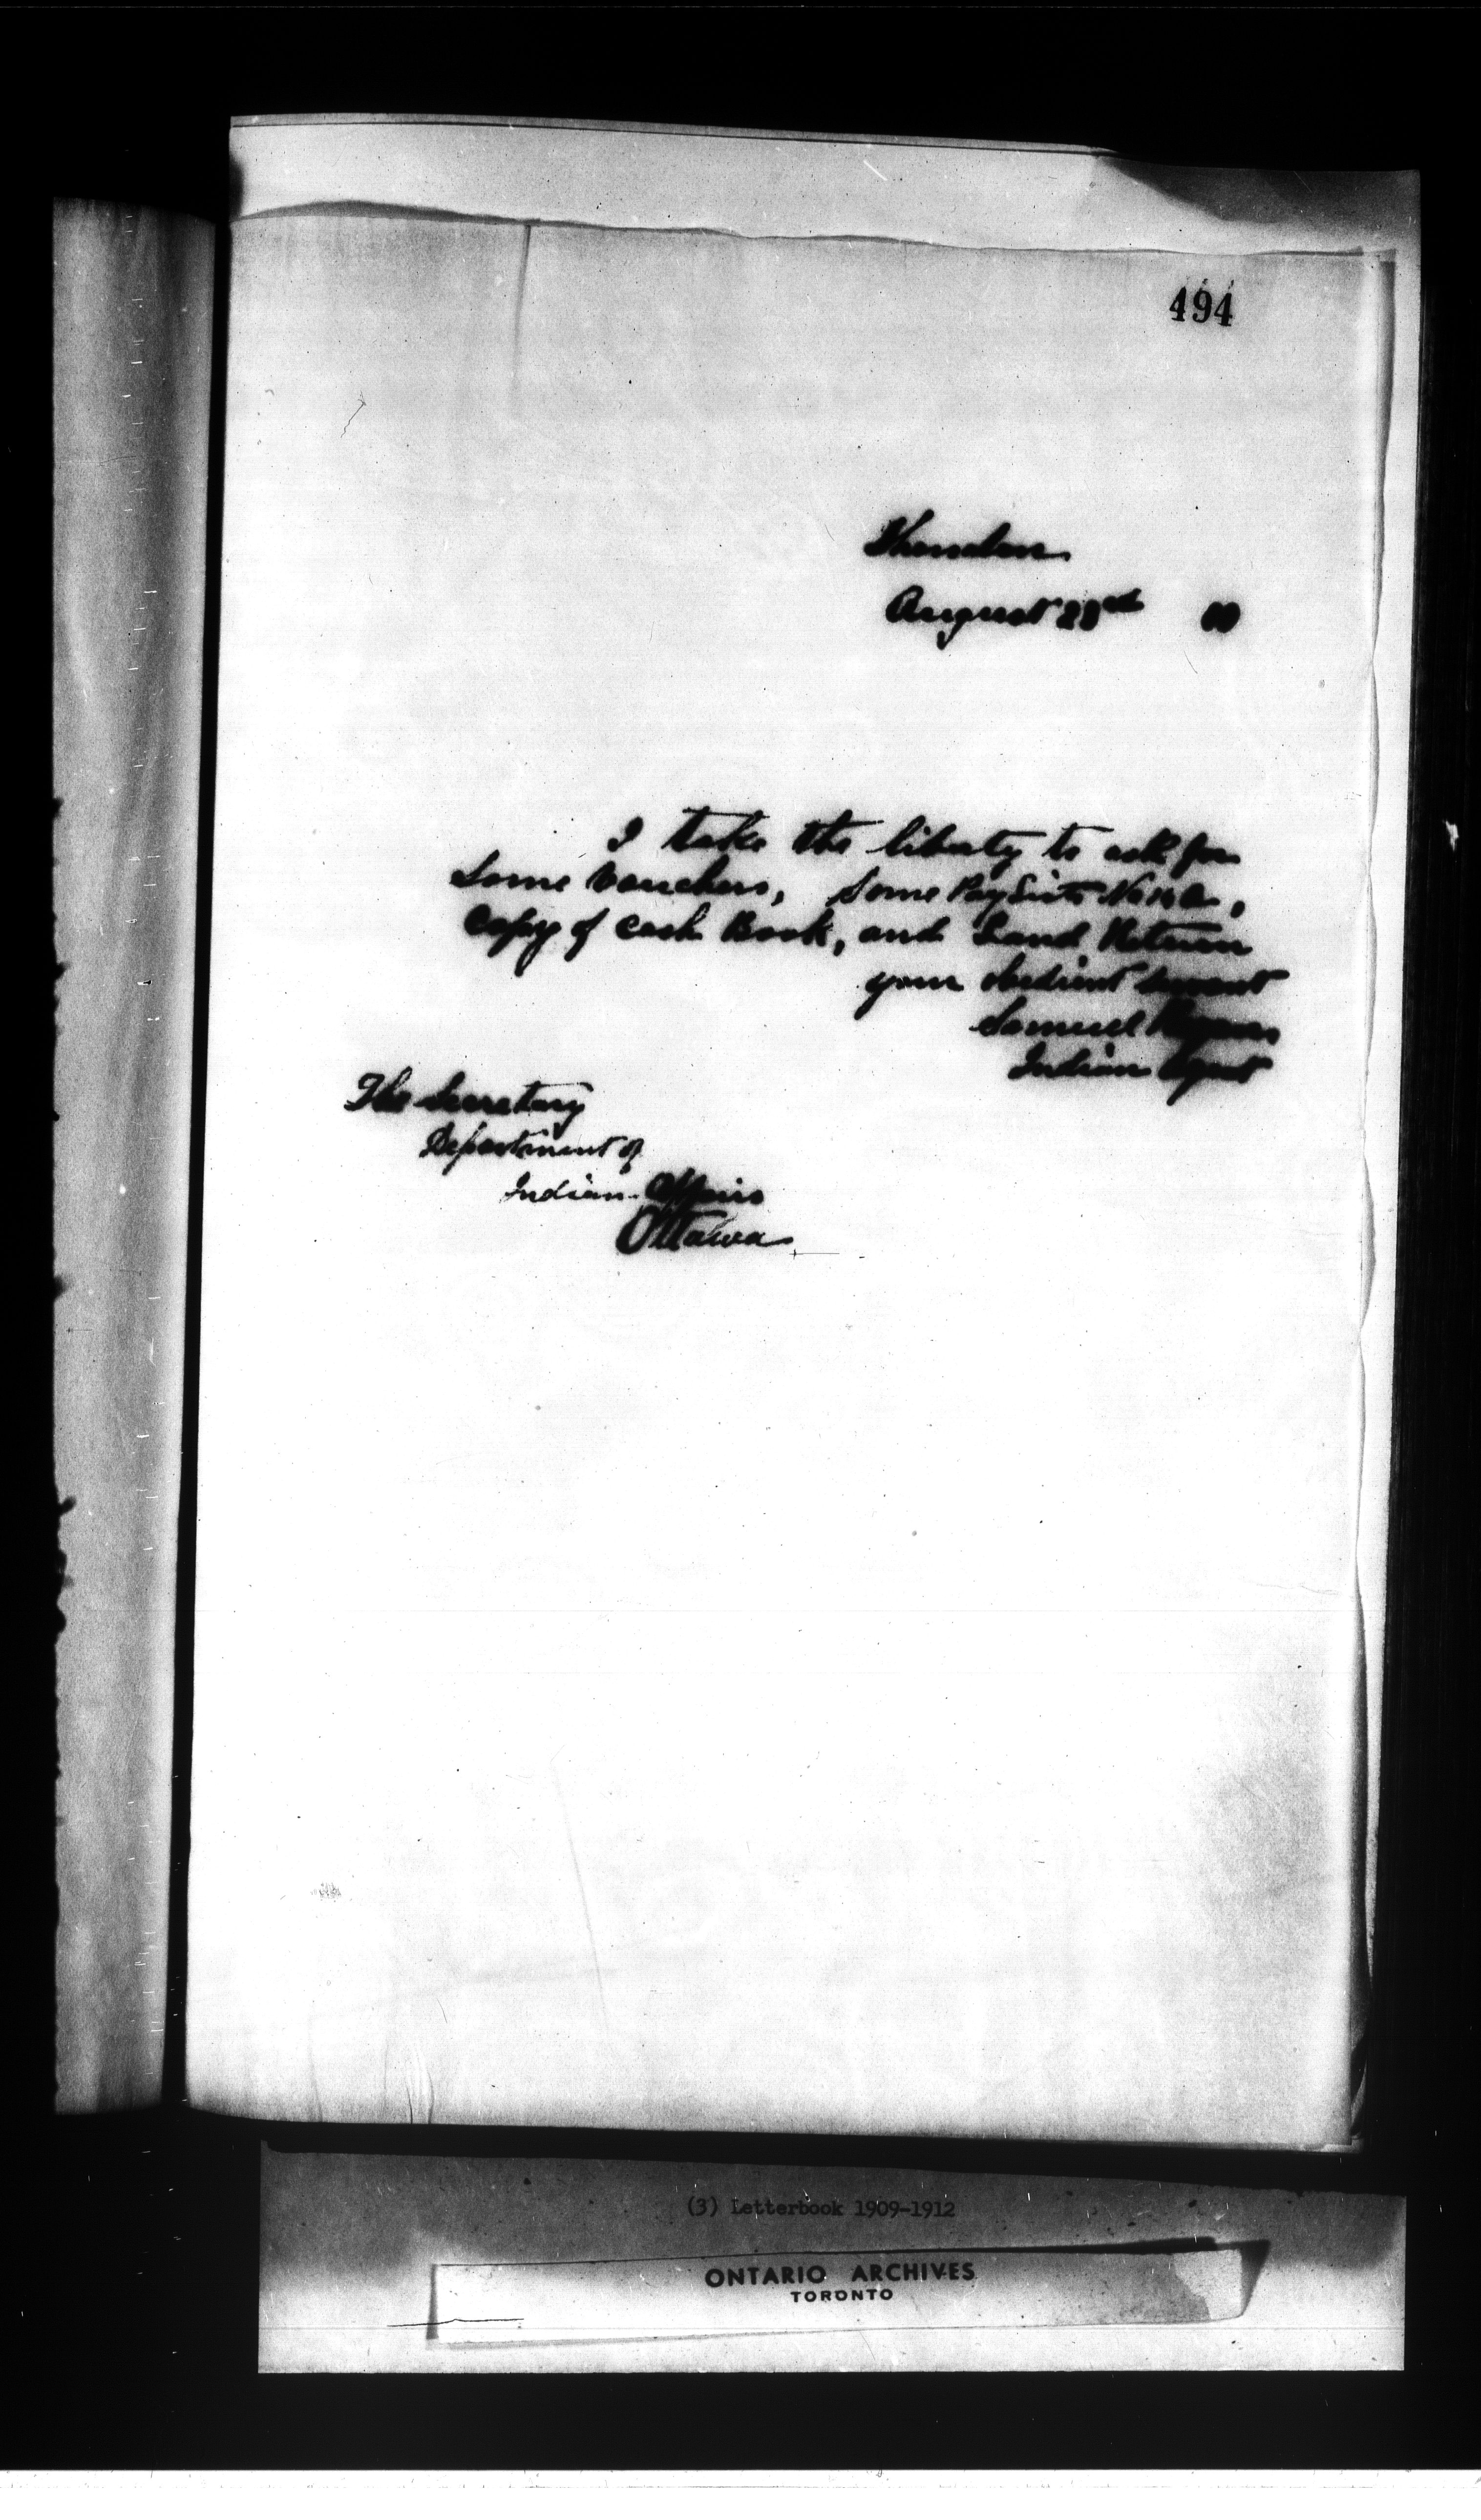 494
August
I take the liberty to ask for
some Vouchers, some Pay Lists No
Copy of Cash Book, and Land Return
your obedient servant
Samuel
Indian Agent
The Secretary
Department of
Indian Affairs
Ottawa
(3) Letterbook 1909-1912
ONTARIO ARCHIVES
TORONTO